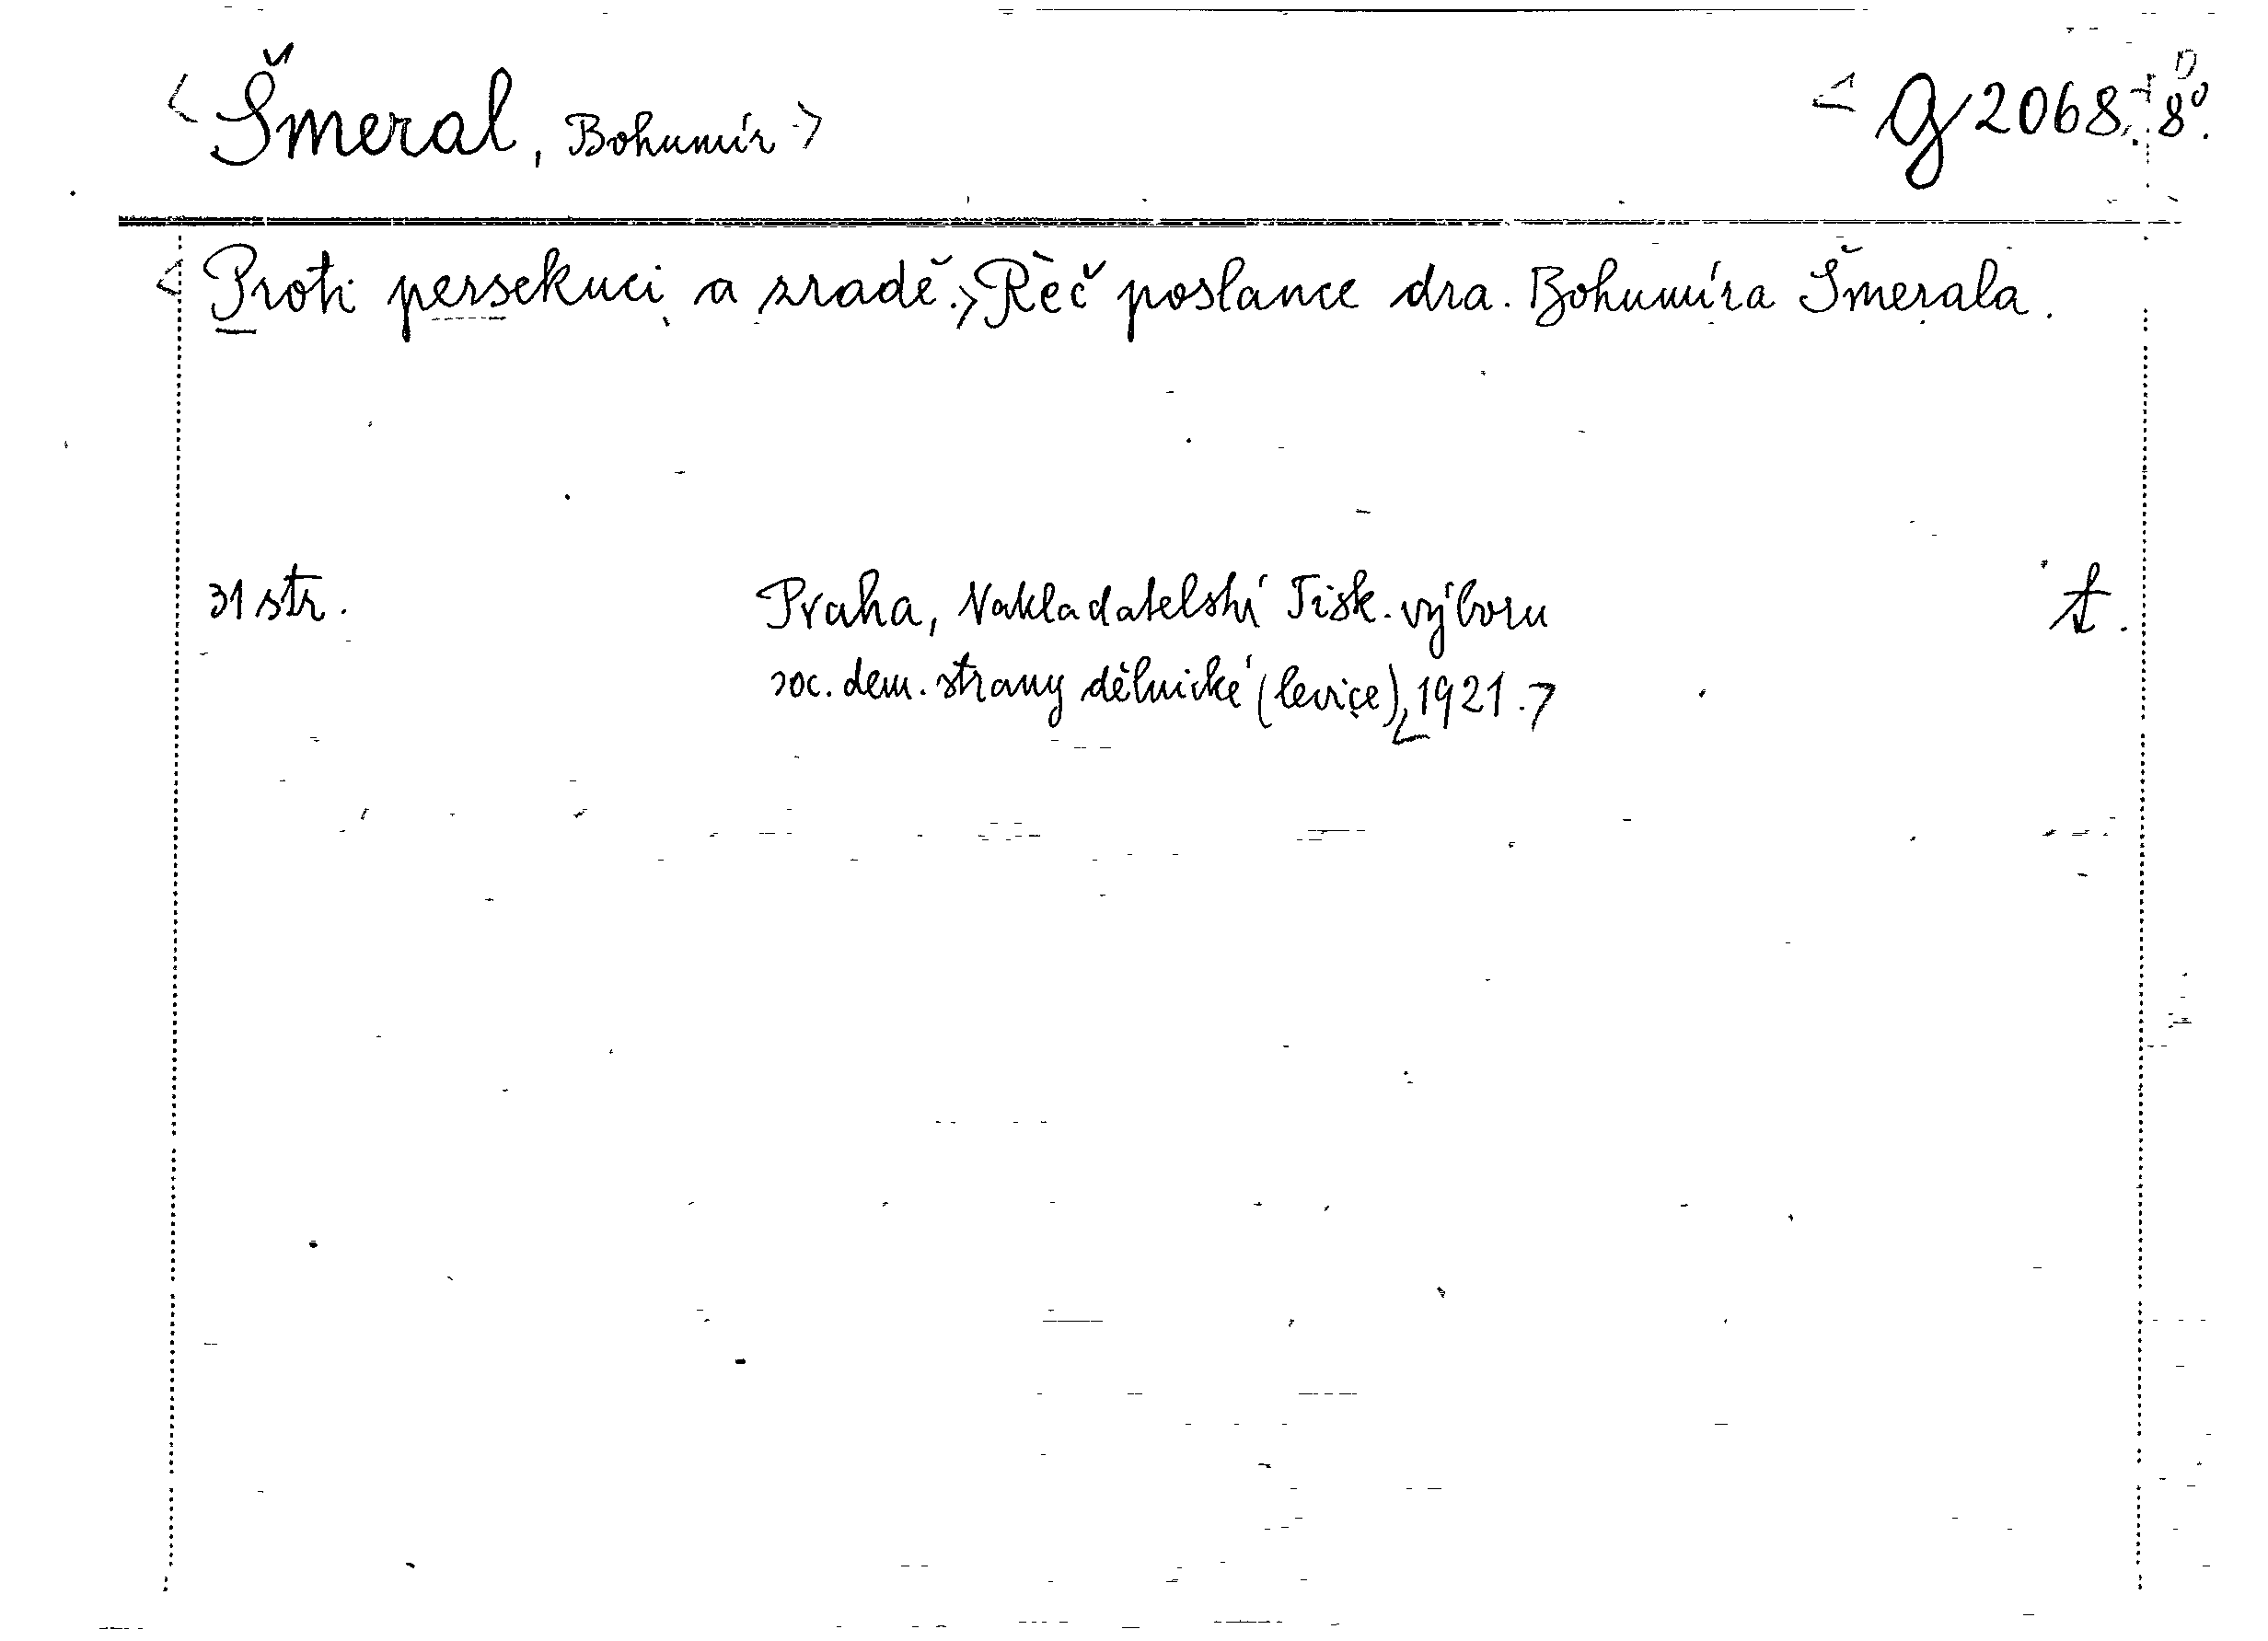 <Šmeral, Bohumír> <g 2068. 8⁰.
<Proti persekuci a zradě.> Řeč poslance dra. Bohumíra Šmerala.
31 str. Praha, Nakladatelství Tisk. výboru
soc. dem. strany dělnické (levice), <1921.>